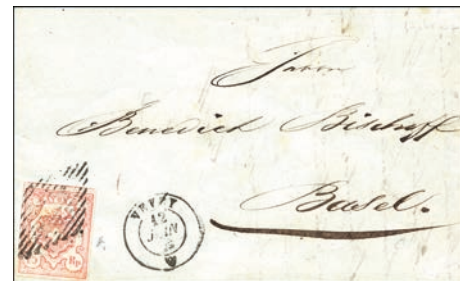 Herrn
Benedich Bischoff
Basel.
VEVEY
12
JUIN
15 Rp.